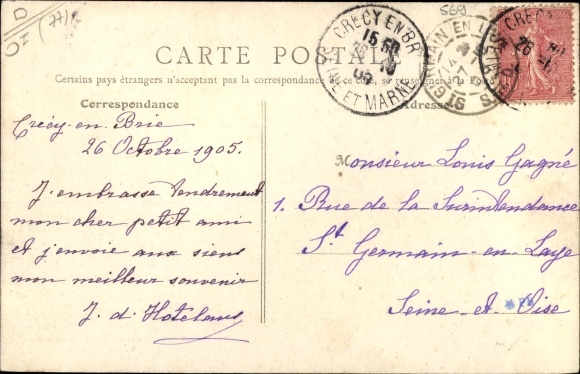 D
569
CARTE POSTALE
Certains pays étrangers n'acceptant pas la correspondance se renseigner à la Poste
CRECY EN BRIE
15 50
26
10
05
SEINE ET MARNE
GERMAIN EN
S. ET O.
CRECY
Correspondance
Adresse
Crécy-en-Brie
26 Octobre 1905.
J'embrasse tendrement
mon cher petit ami
et j'envoie aux siens
mon meilleur souvenir
J. d'
Monsieur Louis Gagné
1. Rue de la Surintendance
St Germain-en-Laye
Seine-et-Oise